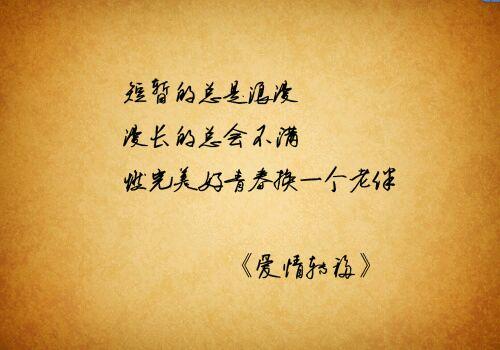 短暂的总是浪漫
漫长的总会不满
燃完美好青春换一个老伴
《爱情转移》